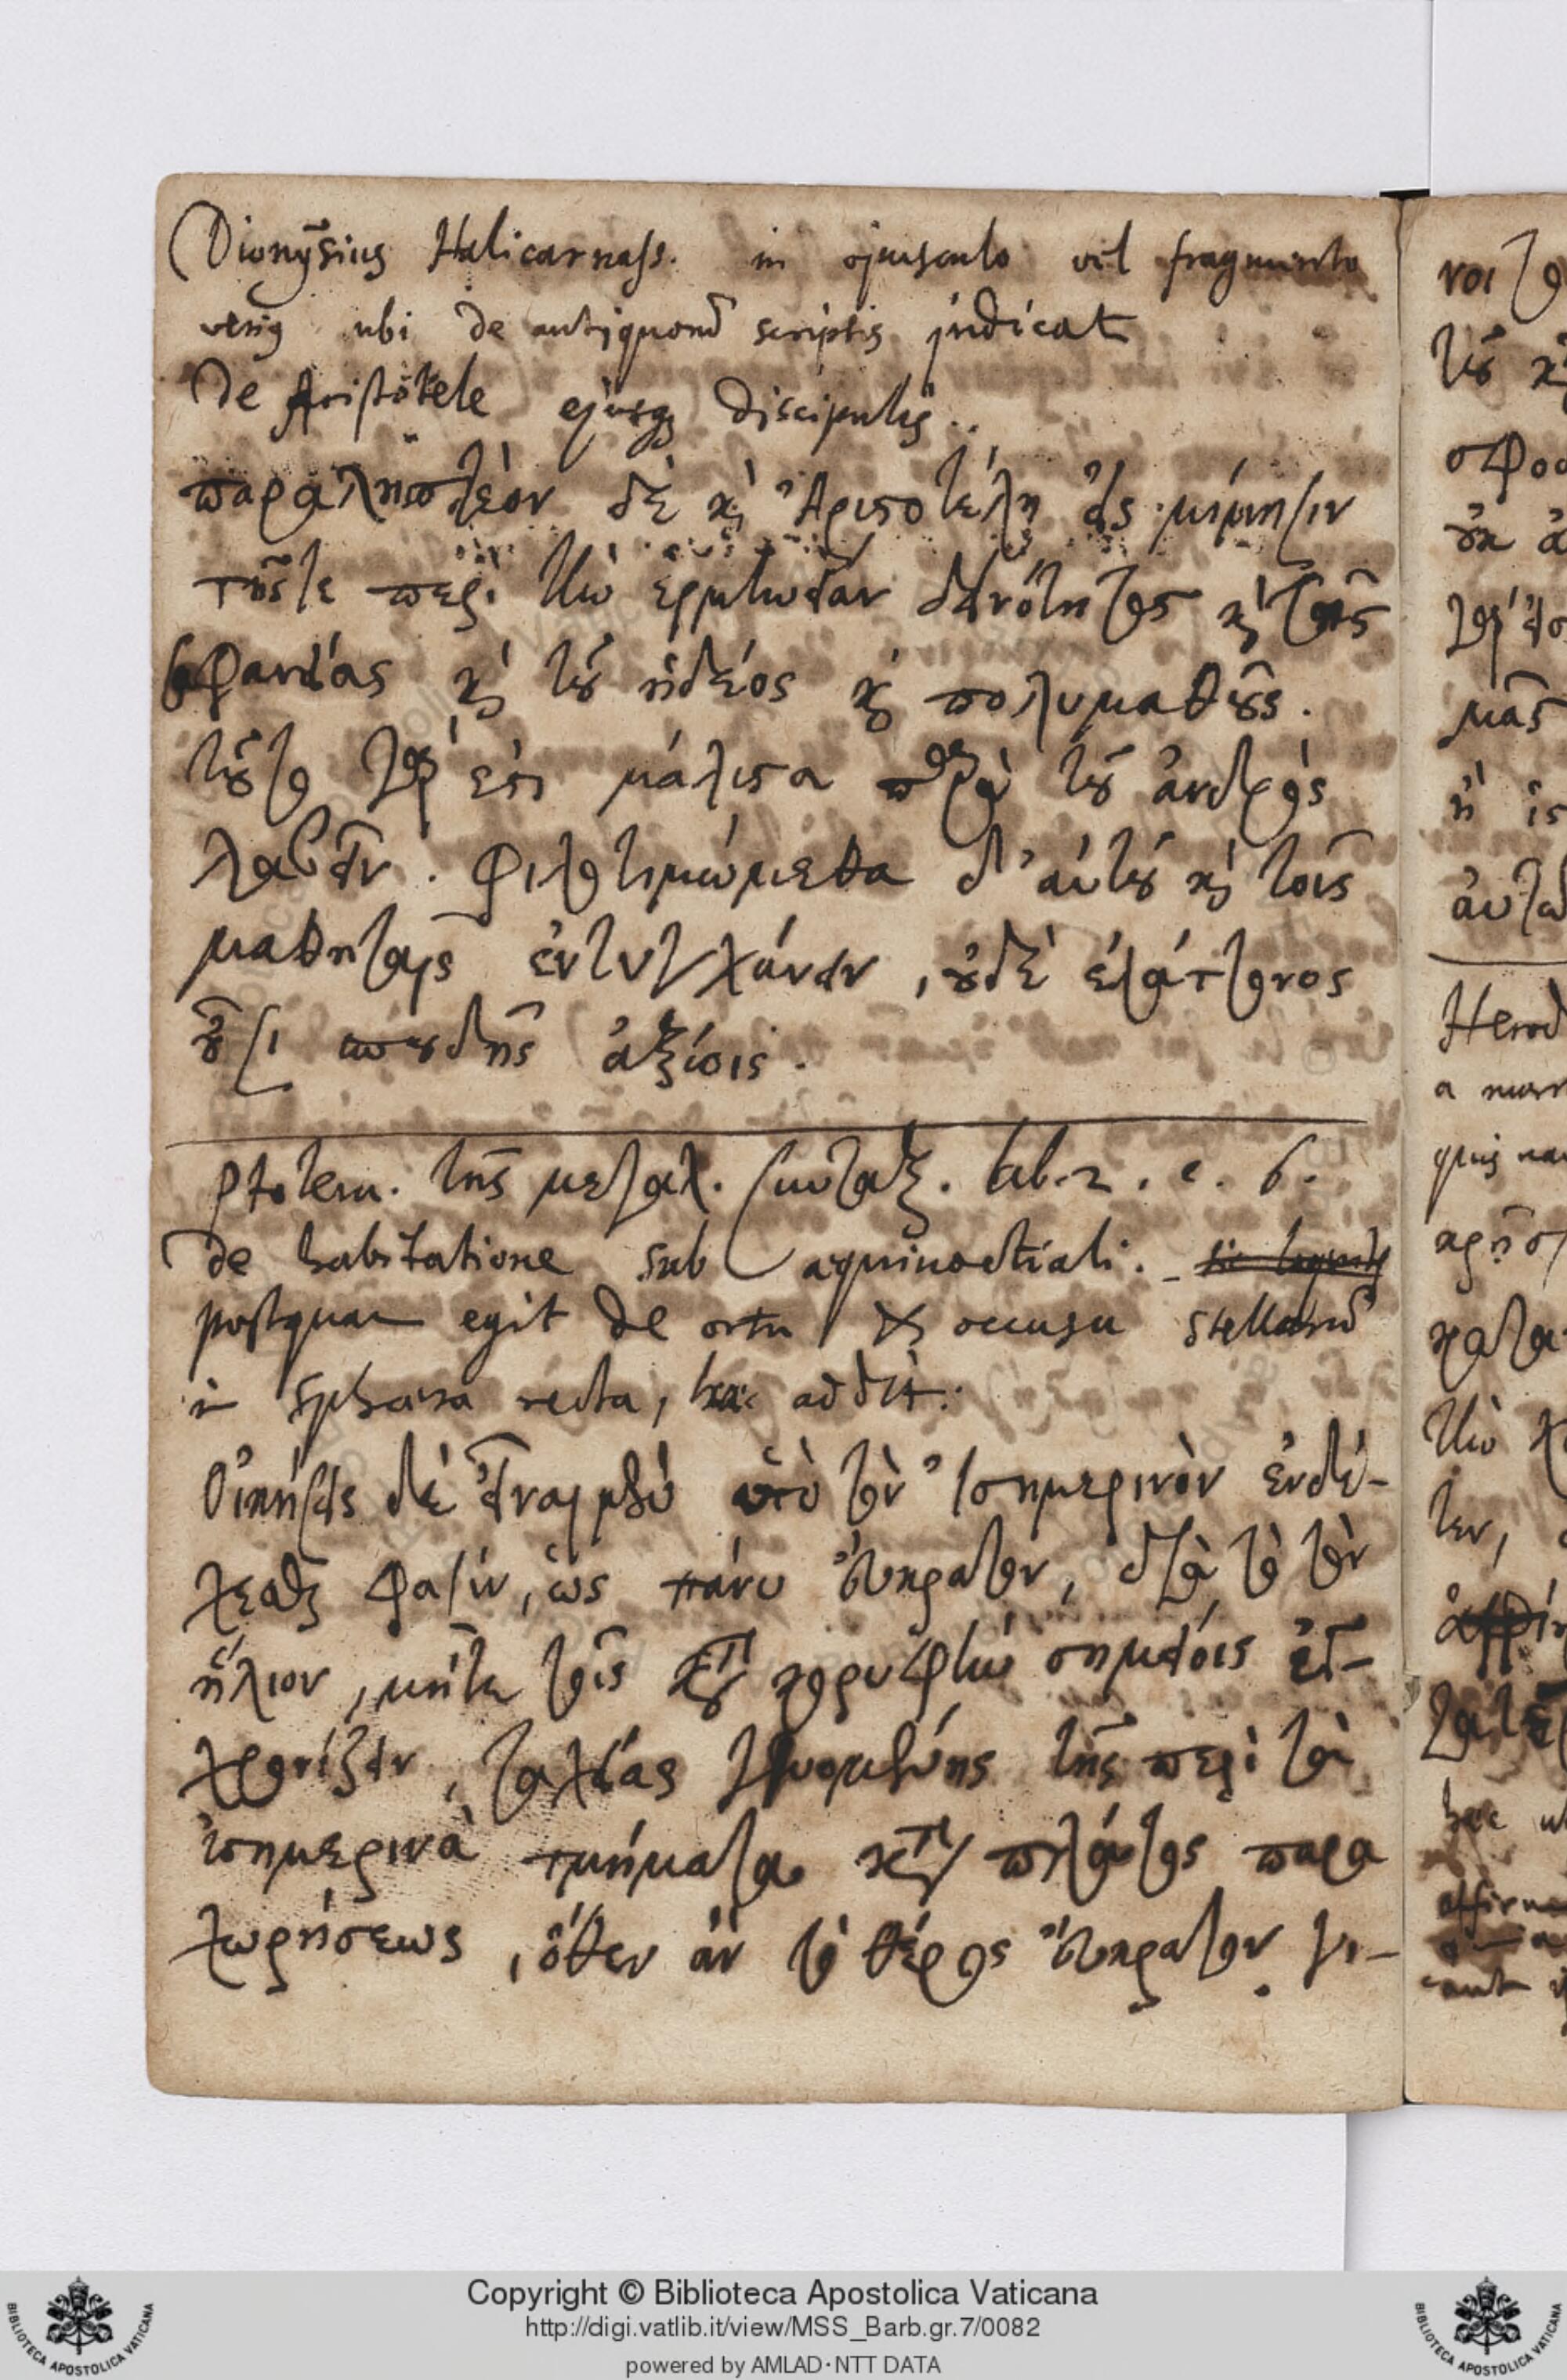 Dionysius Halicarnass. in opusculo vel fragmento
ubi de antiquorũ scriptis judicat
De Aristotele ejusq; discipulis.
παραληπτέον δὲ κὶ Ἀριστοτέλη εἰς μίμησιν
τῆς τε περὶ τὴν ἑρμηνείαν δεινότητος κὶ τῆς
σαφηνείας κὶ τοῦ ἡδέος κὶ πολυμαθοῦς.
τοῦτο γάρ ἐστι μάλιστα παρὰ τοῦ ἀνδρὸς
λαβεῖν. φιλοτιμώμεθα δ' αὐτοῦ κὶ τοῖς
μαθηταῖς ἐντυγχάνειν, οὐδὲ ἐλάττονος
οὖσι σπουδῆς ἀξίοις.
Ptolem. τῆς μεγαλ. συνταξ. lib. 2. c. 6.
de habitatione sub aequinoctiali.
postquam egit de ortu & occasu stellarũ
in sphaera recta, haec addit:
Οἰκήσεις δὲ εἶναι μὲν ὑπὸ τὸν ἰσημερινὸν ἐνδέ-
χεσθαι φασίν, ὡς πάνυ εὔκρατον, διὰ τὸ τὸν
ἥλιον, μήτε τοῖς κατὰ κορυφὴν σημείοις ἐγ-
χρονίζειν, ταχείας γινομένης τῆς περὶ τὰ
ἰσημερινὰ τμήματα κατὰ πλάτος παρα
χωρήσεως, ὅθεν ἂν τὸ θέρος εὔκρατον γι-
Copyright © Biblioteca Apostolica Vaticana
http://digi.vatlib.it/view/MSS_Barb.gr.7/0082
powered by AMLAD·NTT DATA
BIBLIOTECA APOSTOLICA VATICANA
BIBLIOTECA APOSTOLICA VATICANA